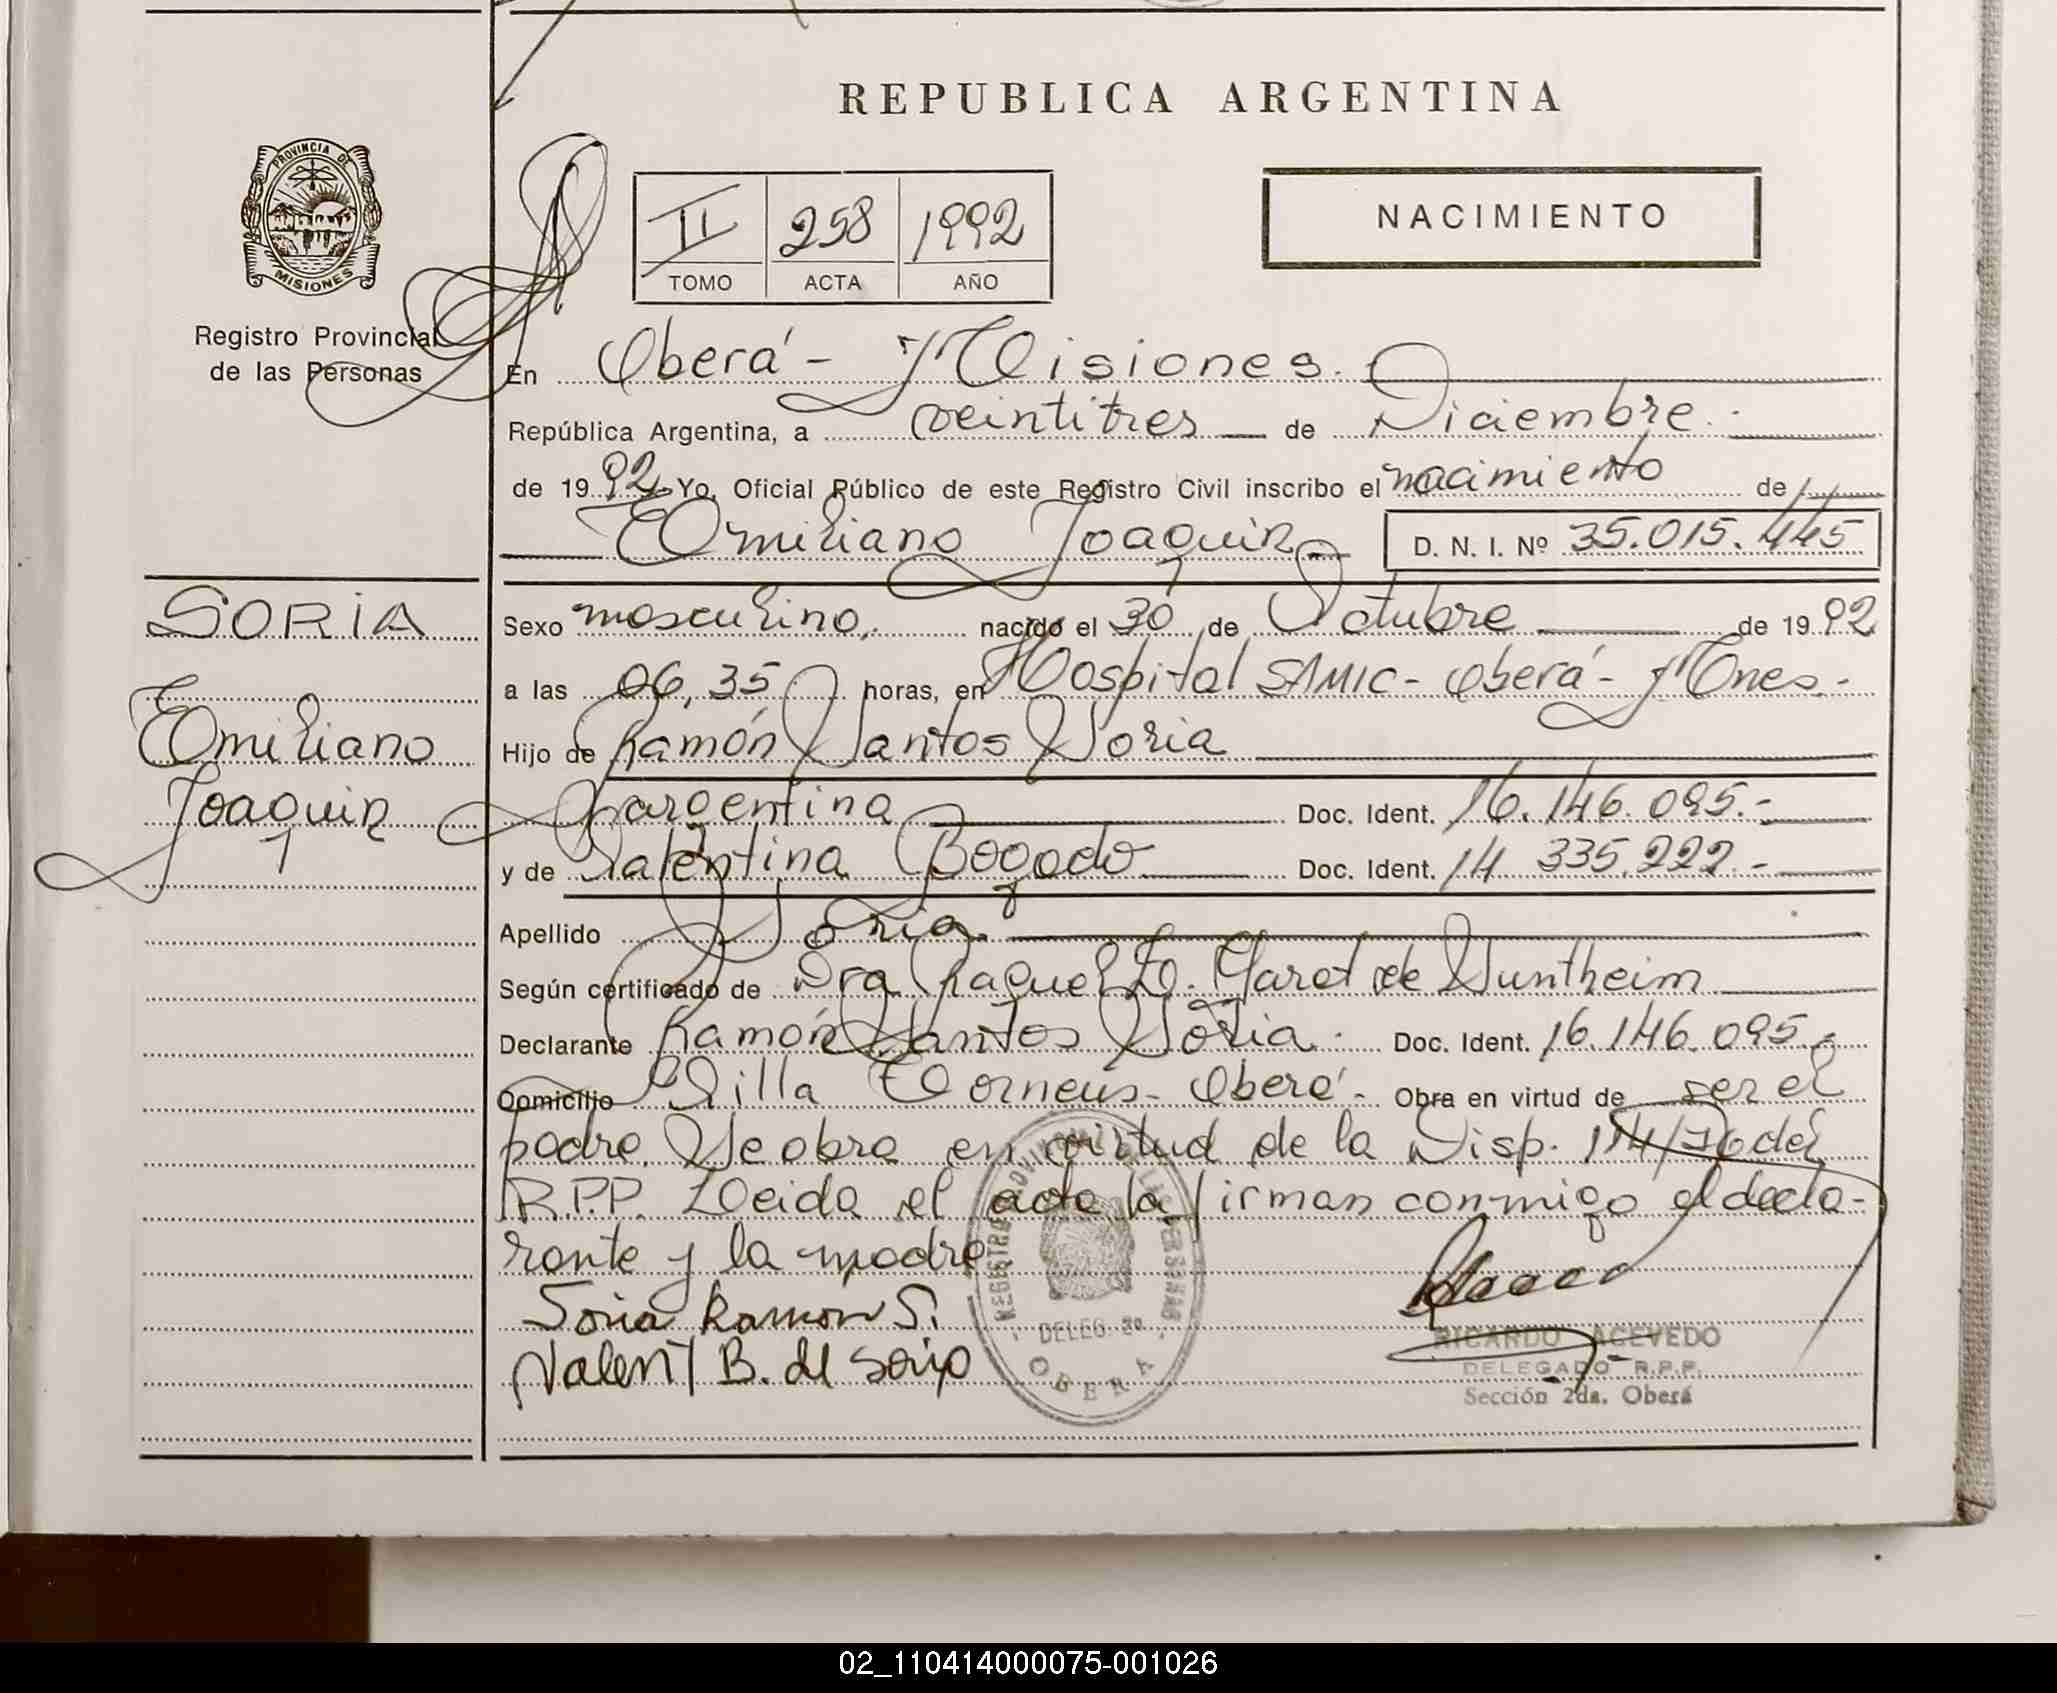 REPUBLICA ARGENTINA
PROVINCIA DE
MISIONES
Registro Provincial
de las Personas
II 258 1992
TOMO ACTA AÑO
NACIMIENTO
En Oberá - Misiones.
República Argentina, a veintitres de Diciembre.
de 1992 Yo, Oficial Público de este Registro Civil inscribo el nacimiento de
Emiliano Joaquin D. N. I. Nº 35.015.445
SORIA
Emiliano
Joaquin
Sexo masculino, nacido el 30 de Octubre de 1992
a las 06,35 horas, en Hospital SAMIC - Oberá - Mnes.-
Hijo de Ramón Santos Soria
argentina Doc. Ident. 16.146.095.-
y de Valentina Bogado Doc. Ident. 14 335.222.-
Apellido Soria.
Según certificado de Dra Raquel de Suntheim
Declarante Ramón Santos Soria. Doc. Ident. 16.146.095.-
Domicilio Villa Oberá - Obra en virtud de ser el
padre. Se obra en virtud de la Disp. 114/76 del
R.P.P. Leida el acta la firman conmigo el decla-
rante y la madre
Soria Ramón S.
Valent B. de Soria
REGISTRO PROVINCIAL DE LAS PERSONAS
DELEG. 2º
OBERA
RICARDO ACEVEDO
DELEGADO R.P.P.
Sección 2da. Oberá
02_110414000075-001026